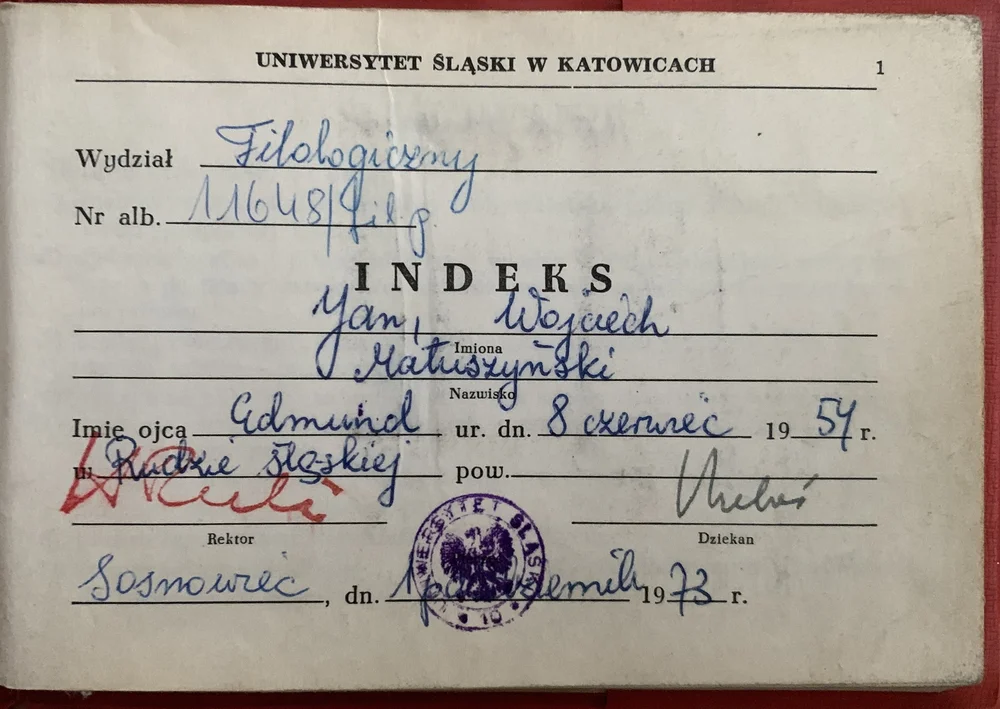 UNIWERSYTET ŚLĄSKI W KATOWICACH 1
Wydział Filologiczny
Nr alb. 11648/fil p
INDEKS
Jan, Wojciech
Imiona
Matuszyński
Nazwisko
Imię ojca Edmund ur. dn. 8 czerwiec 1954 r.
w Rudzie śląskiej pow.
Rektor Dziekan
Sosnowiec, dn. 1 październik 1973 r.
UNIWERSYTET ŚLĄSKI 10